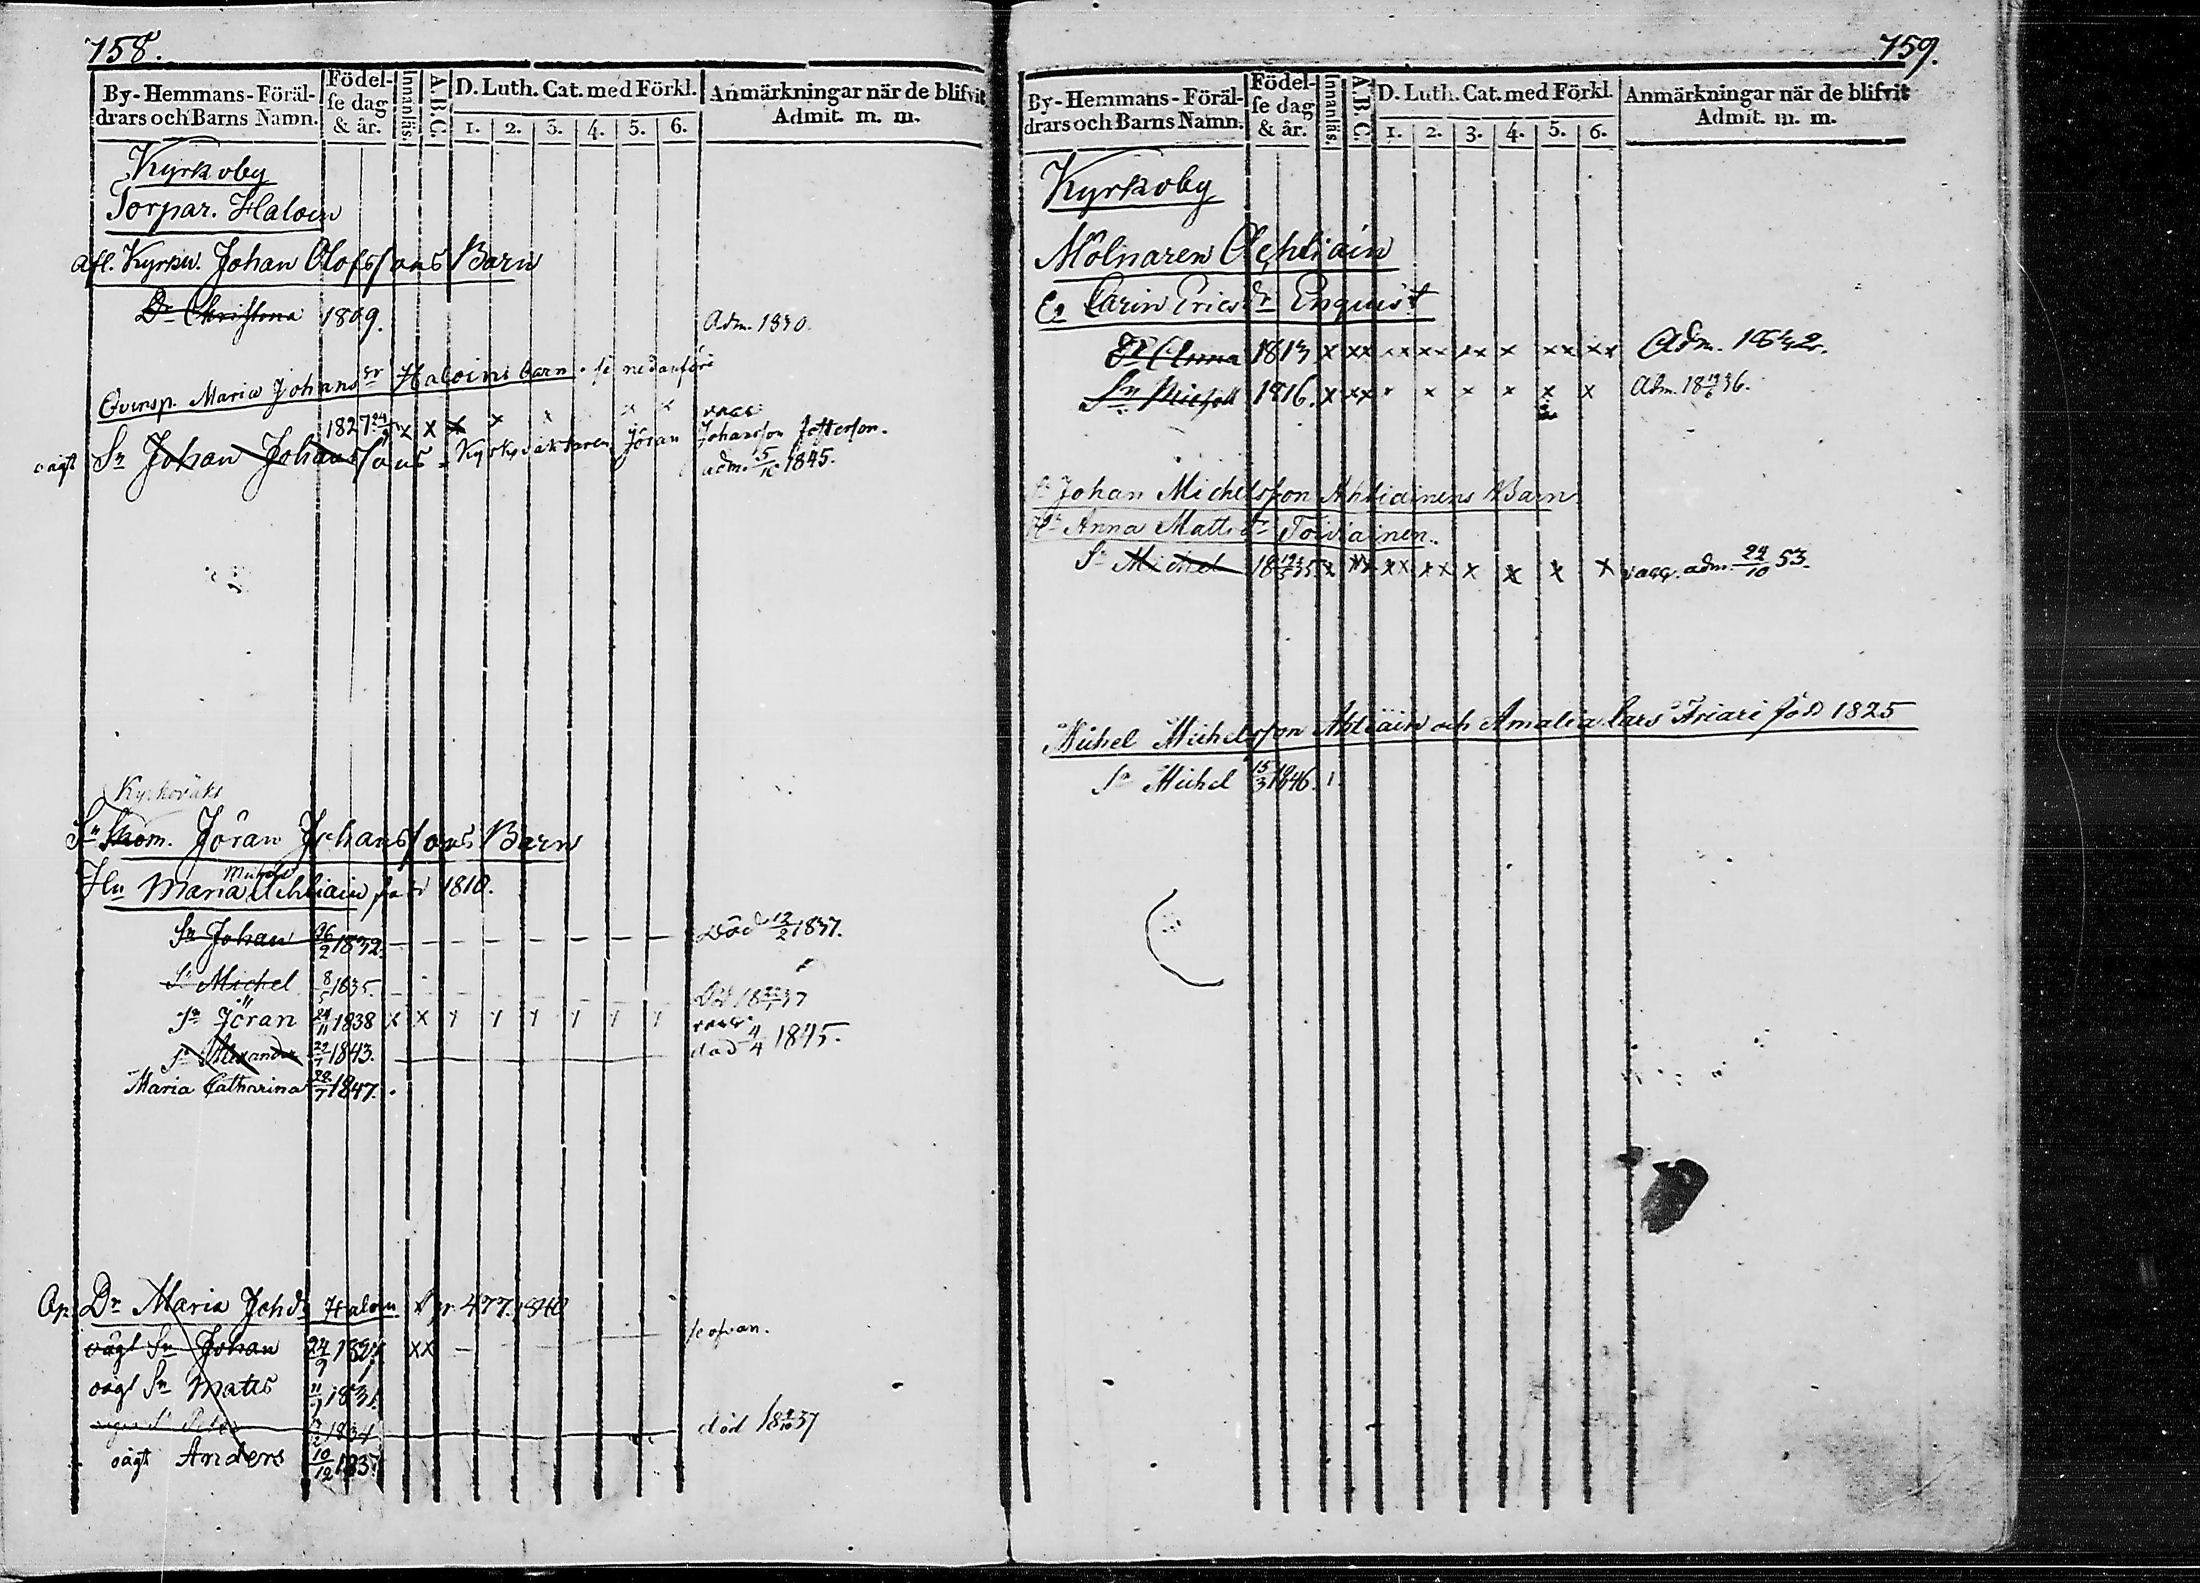 758.
By-Hemmans-Föräl-
drars och Barns Namn.
Födel-
se dag
& år.
Innanläs.
A.B.C.
D. Luth. Cat. med Förkl.
1. 2. 3. 4. 5. 6.
Anmärkningar när de blifvit
Admit. m. m.
Kyrkoby
Torpar. Haloin
Afl. Kyrkw. Johan Olofssons Barn
Dr Christina 1809. Adm. 1830.
Qvinsp. Maria Johansdr Haloins barn. se nedanföre
1827 24/9 x x x x x x x vacc
oägt Sn Johan Johanssons Kyrkväktaren Jöran Johansson Fosterson.
adm. 5/10 1845.
Kyrkoväkt
Sn Jöran Johanssons Barn
Hu Maria Michelsdr Ahliain född 1810.
Sn Johan 26/2 1832. Död 12/2 1837.
Sn Michel 8/5 1835. Död 18 37
Sn Jöran 24/11 1838 x x vacc
Sn Alexander 22/7 1843. död 4/4 1845.
Maria Catharina 28/7 1847.
Dr Maria Johdr Haloin 477. 1840
oägt Sn Johan 24/9 1827 xx se ofvan.
oägt Sn Matts 11/7 1831.
1834 död 18 37
oägt Anders 10/12 1837
759.
By-Hemmans-Föräl-
drars och Barns Namn.
Födel-
se dag
& år.
Innanläs.
A.B.C.
D. Luth. Cat. med Förkl.
1. 2. 3. 4. 5. 6.
Anmärkningar när de blifvit
Admit. m. m.
Kyrkoby
Mölnaren Ahliain
Carin Ericsdr Enquist
Dr Anna 1813 x xx xx xx xx x xx xx Adm. 1832.
Sn Michel 1816. x xx x x x x x x Adm. 18 36.
Johan Michelsson Ahliainens Barn
Hu Anna Mattsdr Toiviainen.
Sn Michel 18 35. x xx xx xx x x x x vacc. adm. 24/10 53.
Michel Michelsson Ahliain och Amalia Lars Friari född 1825
Sn Michel 15/3 1846.